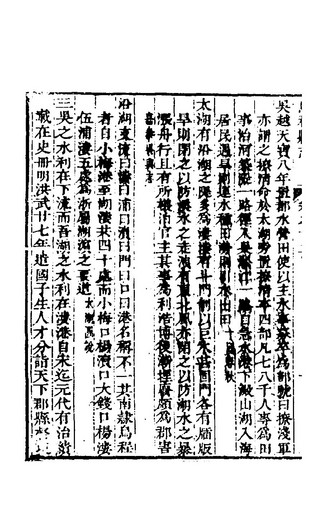 吳越天寶八年置都水營田使以主水事募卒為都號曰撩淺軍
亦謂之撩清命於太湖旁置撩清卒四部凡七八千人專為田
事治河築隄一路徑下吳淞江一路自急水港下澱山湖入海
居民旱則運水種田澇則引水出田十國春秋
太湖有沿湖之隄多為溇溇有斗門制以巨木甚固門各有牐版
旱則閉之以防溪水之走洩有東北風亦閉之以防湖水之暴
漲舟行且有所艤泊官主其事為利浩博後漸湮廢頗為郡害
嘉泰吳興志
沿湖支流曰溇曰浦曰瀆曰門曰口曰港名稱不一其南隸烏程
者自小梅港至湖溇共四十處而小梅口楊瀆口大錢口楊溇
伍浦溇五處為浙屬湖瀉之要道太湖備考
三吳之水利在下流而吾湖之水利在溇港自宋迄元代有治績
載在史冊明洪武廿七年遣國子生人才分詣天下郡縣督